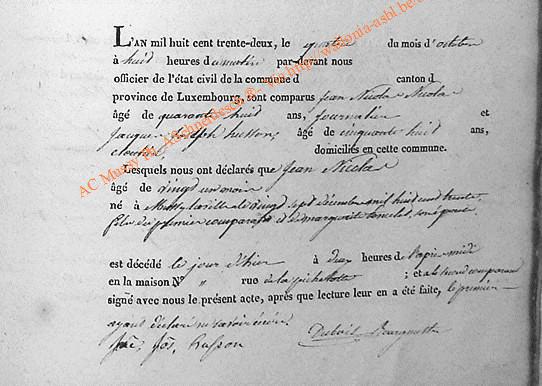 L'AN mil huit cent trente-deux, le quatre du mois d'octobre
à huit heures du matin par-devant nous
officier de l'état civil de la commune d canton d
province de Luxembourg, sont comparus Jean Nicolas Nicolas
âgé de quarante huit ans, journalier et
Jacques Joseph husson, âgé de cinquante huit ans,
cloutier domiciliés en cette commune.
Lesquels nous ont déclarés que Jean Nicolas
âgé de vingt un mois
né à Mussy la ville le vingt sept décembre mil huit cent trente,
fils du premier comparant et de marguerite son épouse
est décédé le jour d'hier à deux heures de l'après midi
en la maison N° " rue de la ; et a le second comparant
signé avec nous le présent acte, après que lecture leur en a été faite, le premier
ayant déclaré ne savoir écrire.
Jos, husson
AC Musson